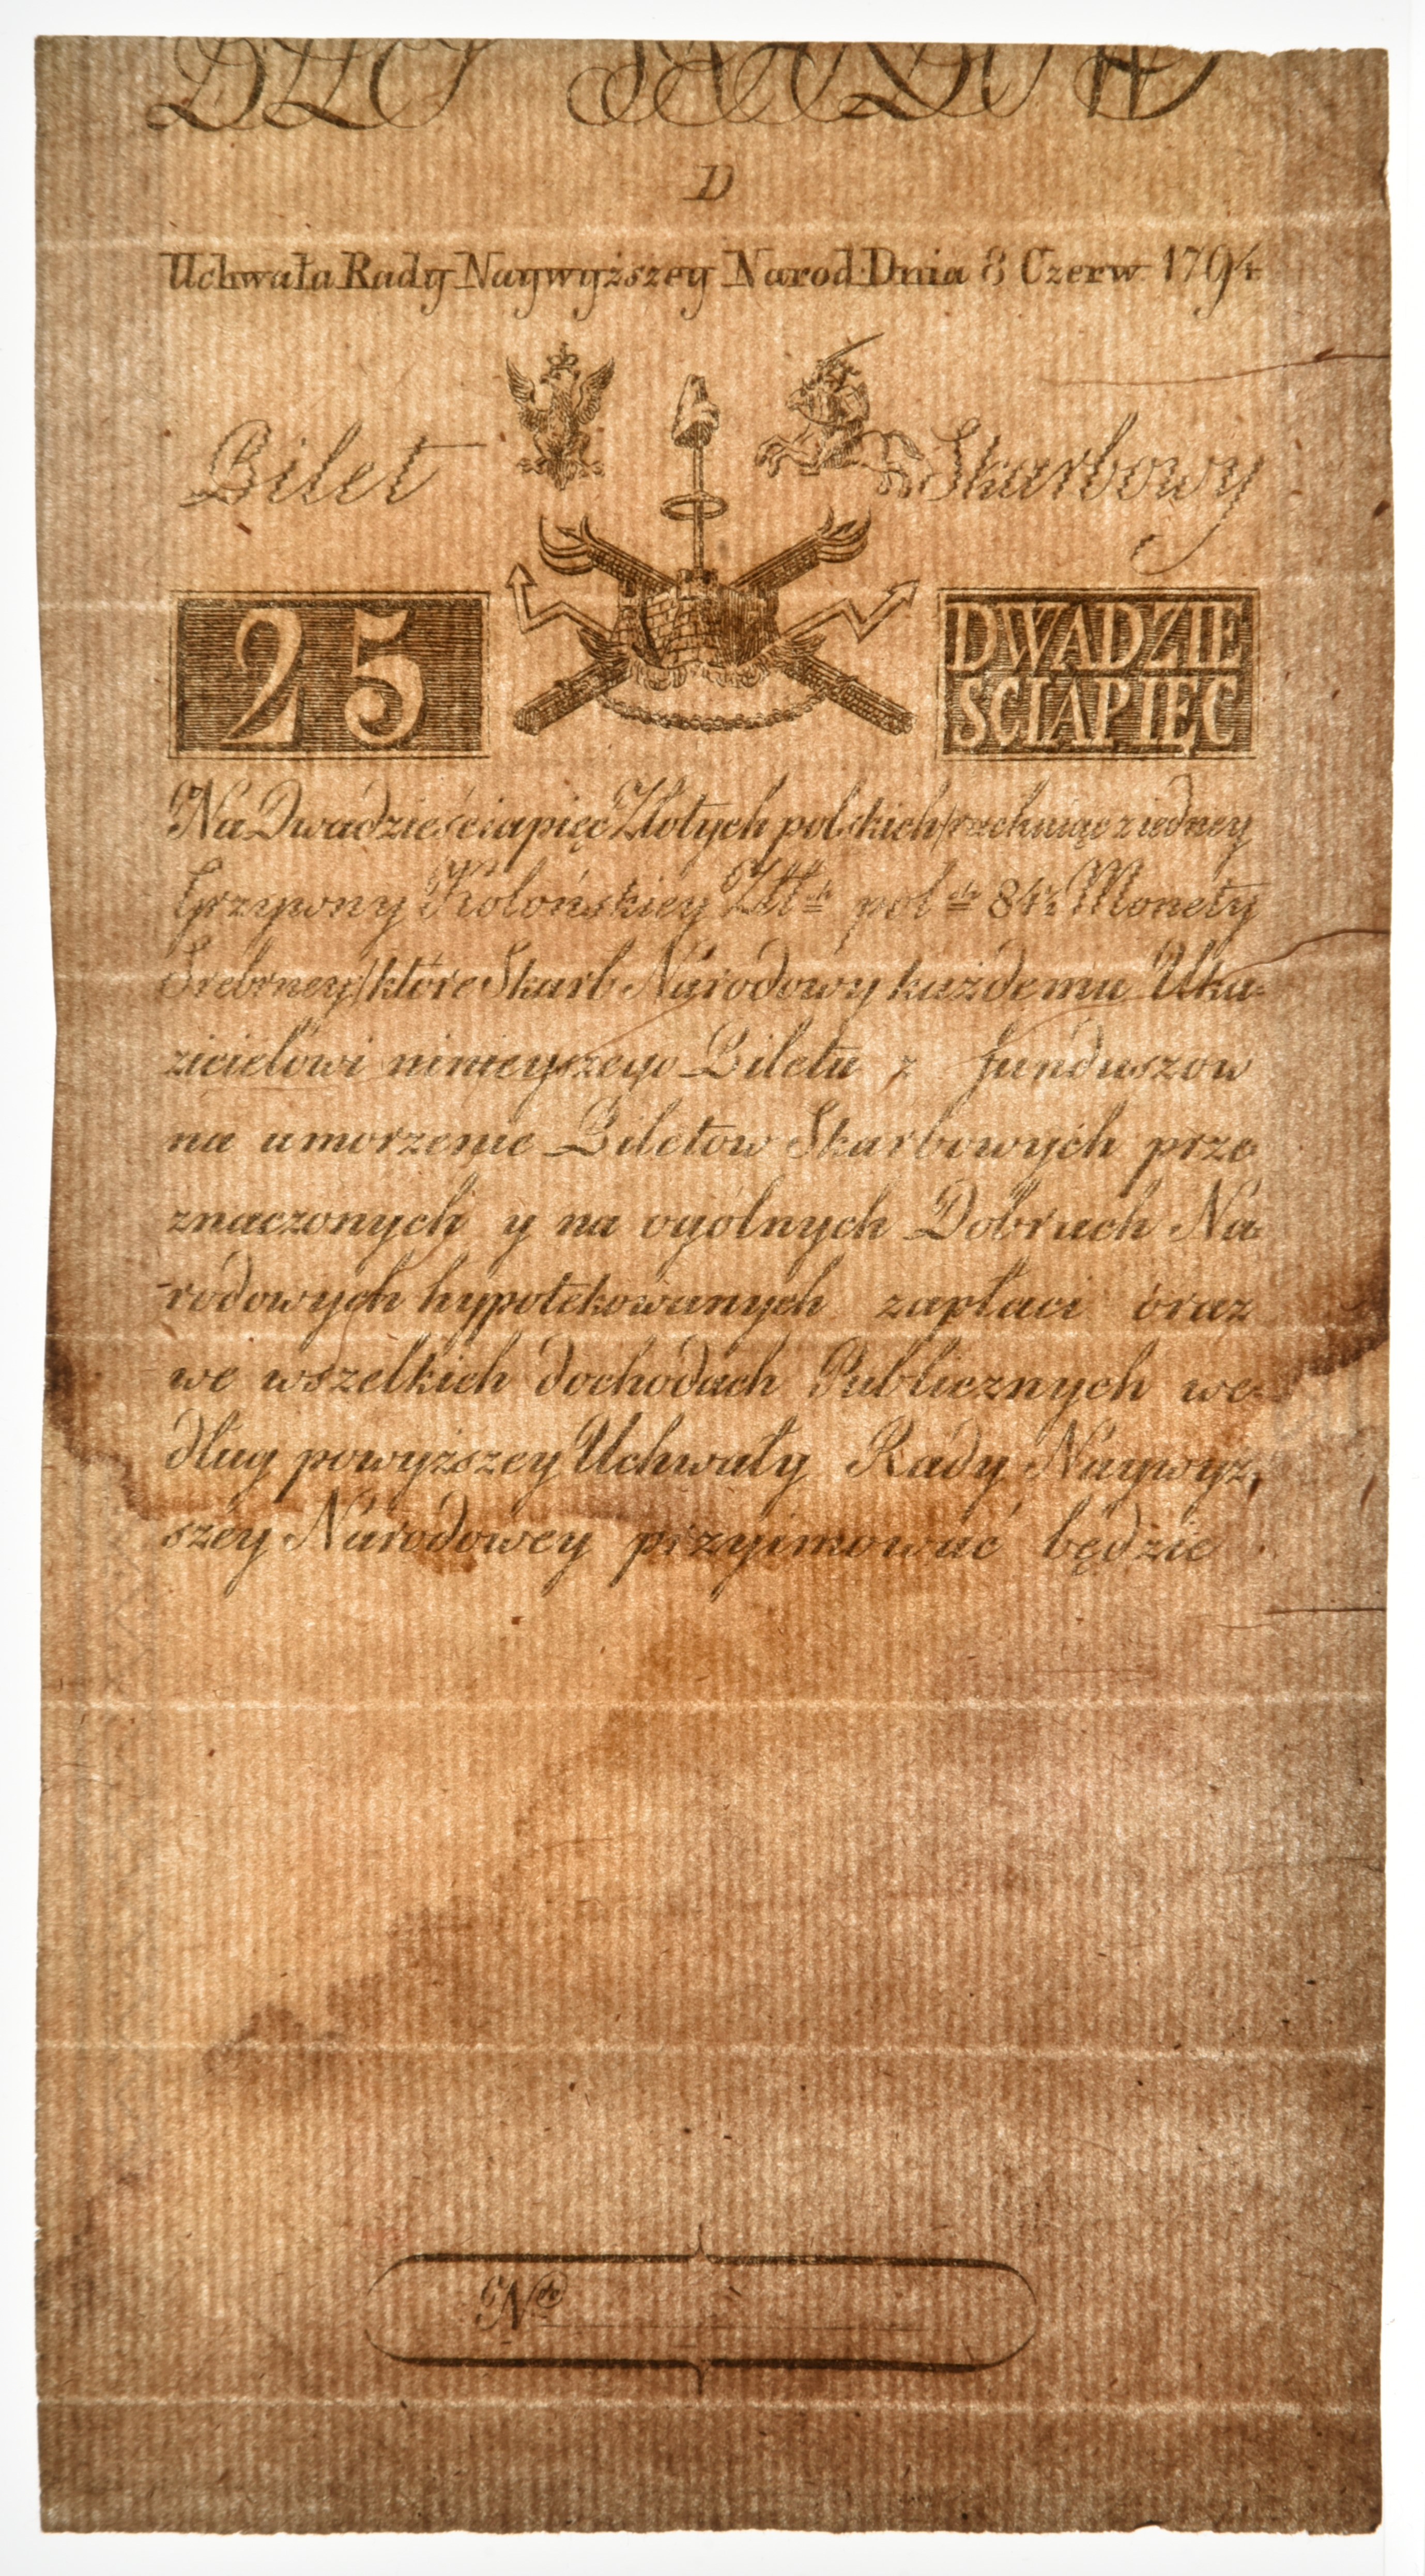 D
Uchwała Rady Naywyższey Narod: Dnia 8 Czerw 1794
Bilet Skarbowy
25
DWADZIE
ŚCIAPIĘĆ
Na Dwadzieściapięć Złotych polskich/rachuiąc z iedney
Grzywny Kolońskiey Złł: pol: 84½ Monety
Srebrney/które Skarb Narodowy każdemu Uka=
zicielowi ninieyszego Biletu z funduszow
na umorzenie Biletow Skarbowych prze
znaczonych y na ogólnych Dobrach Na=
rodowych hypotekowanych zapłaci oraz
we wszelkich dochodach Publicznych we=
dług powyższey Uchwały Rady Naywyż,
szey Narodowey przyimować będzie
N<sup>ro</sup>